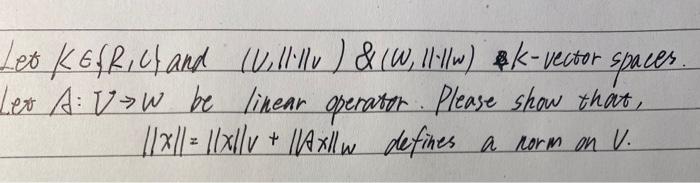 Let K∈{R,C} and (V,||·||v) & (W,||·||w) k-vector spaces.
Let A: V→W be linear operator. Please show that,
||x||=||x||v + ||Ax||w defines a norm on V.